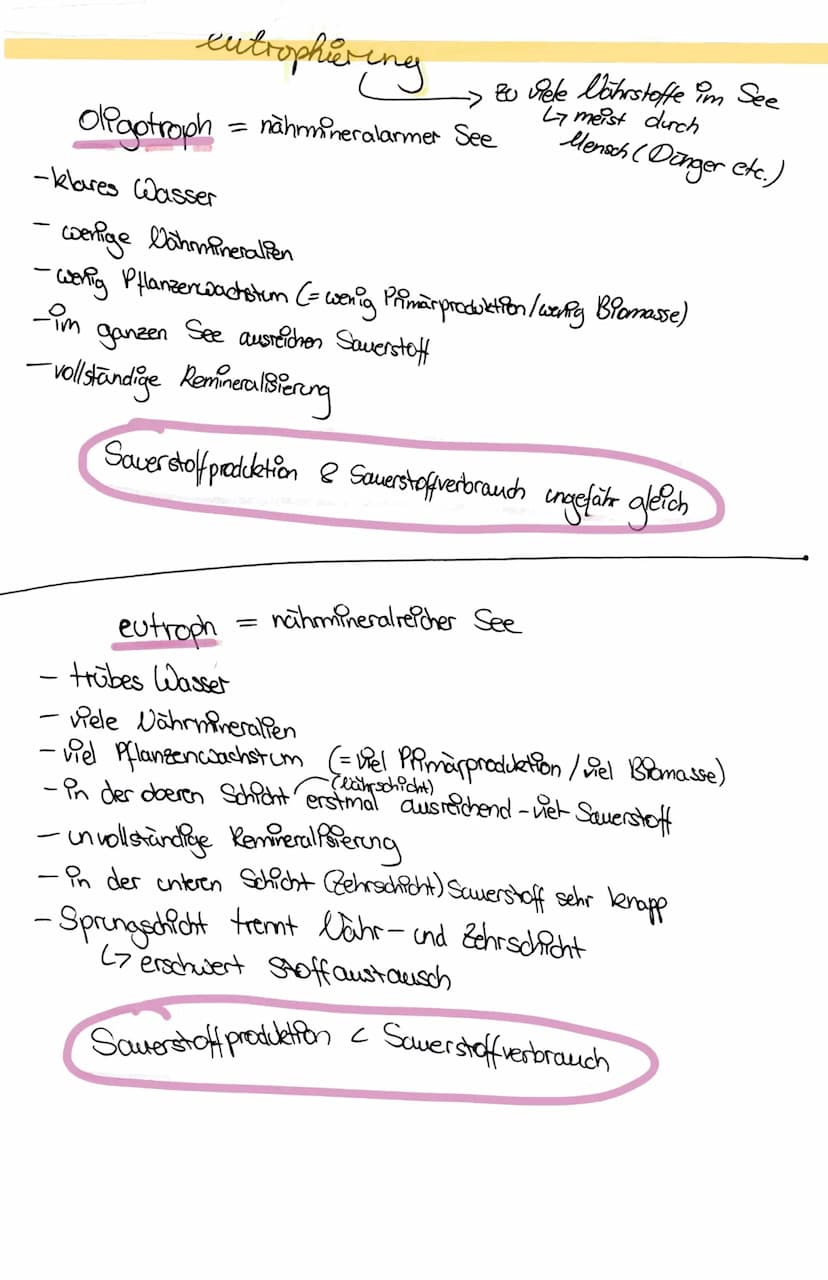 eutrophierung
→ zu viele Nährstoffe im See
↳ meist durch
Mensch (Dünger etc.)
oligotroph = nährmineralarmer See
- klares Wasser
- wenige Nährmineralien
- wenig Pflanzenwachstum (= wenig Primärproduktion/wenig Biomasse)
- im ganzen See ausreichen Sauerstoff
- vollständige Remineralisierung
Sauerstoffproduktion & Sauerstoffverbrauch ungefähr gleich
eutroph = nährmineralreicher See
- trübes Wasser
- viele Nährmineralien
- viel Pflanzenwachstum (= viel Primärproduktion / viel Biomasse)
(Nährschicht)
- in der oberen Schicht erstmal ausreichend - viel Sauerstoff
- unvollständige Remineralisierung
- in der unteren Schicht (Zehrschicht) Sauerstoff sehr knapp
- Sprungschicht trennt Nähr- und Zehrschicht
↳ erschwert Stoffaustausch
Sauerstoffproduktion < Sauerstoffverbrauch